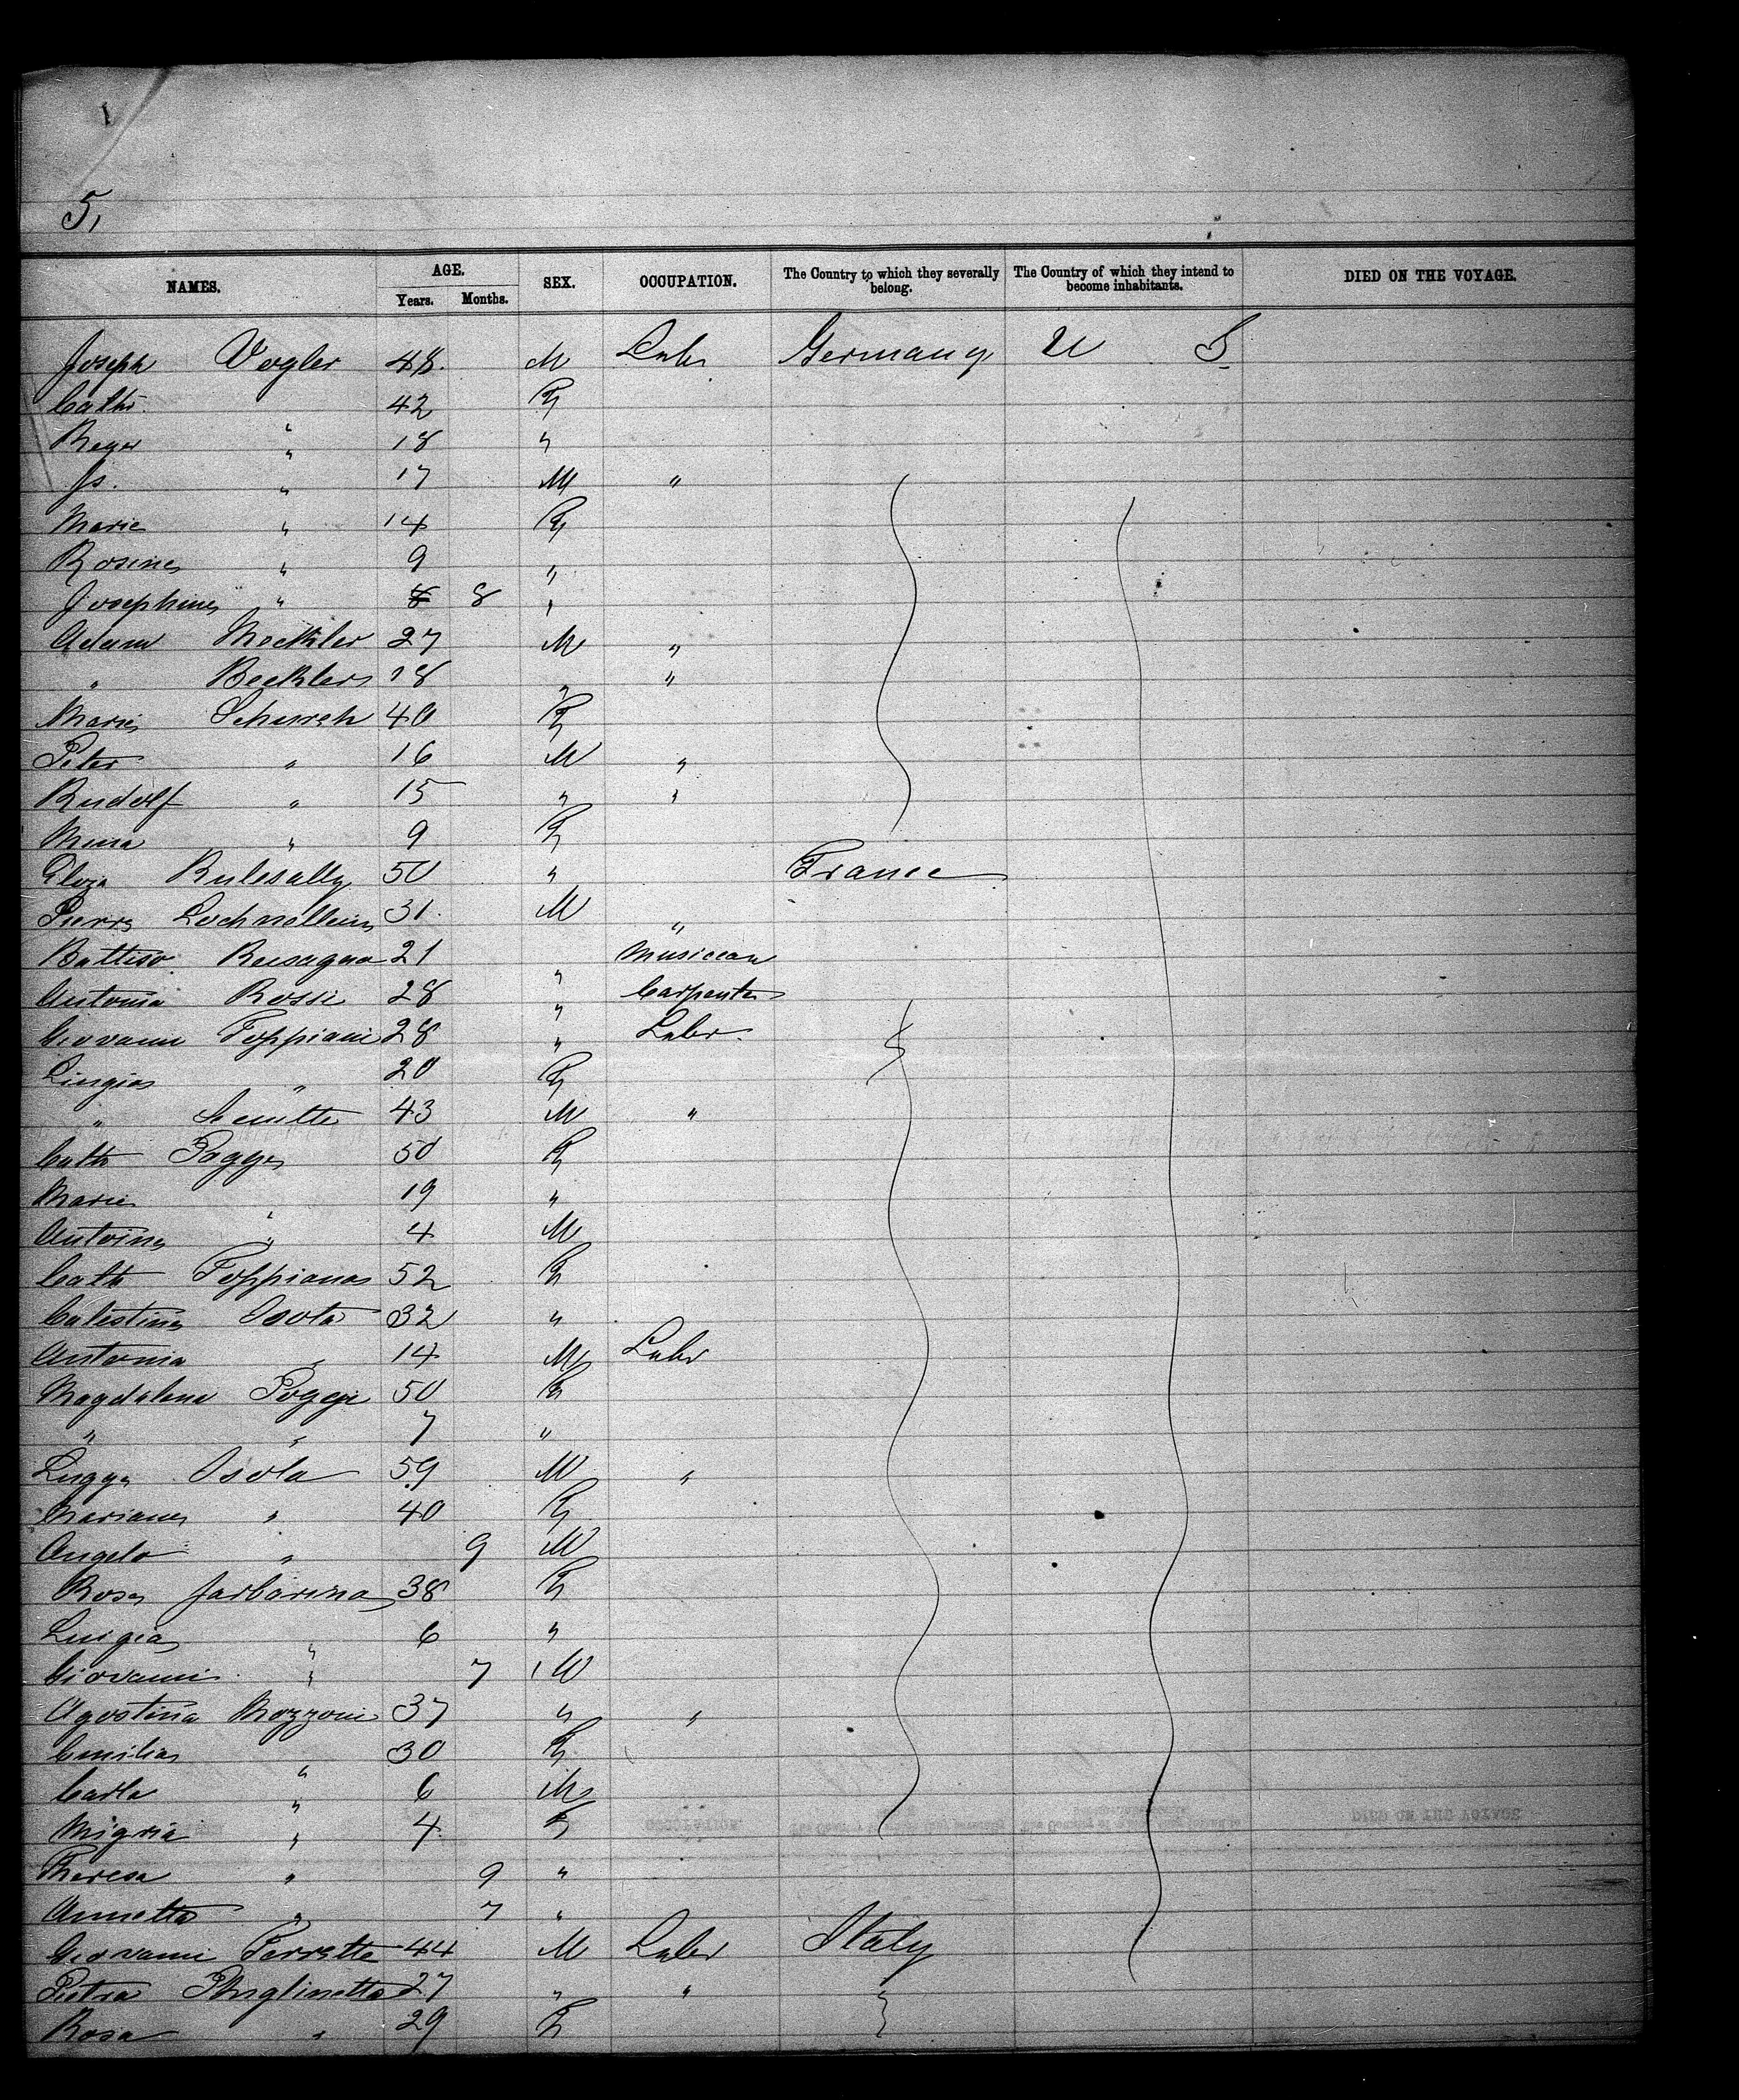 5,
NAMES. AGE. SEX. OCCUPATION. The Country to which they severally belong. The Country of which they intend to become inhabitants. DIED ON THE VOYAGE.
Years. Months.
Joseph Vogler 48. M Labr Germany U S
Cath. 42 F
" 18 "
Js. " 17 M "
Marie " 14 F
Rosine " 9 "
Josephine " 8 "
Adam Meckler 27 M "
" Beckler 18 " "
Marie Schurch 40 F
Peter " 16 M "
Rudolf " 15 " "
Mina " 9 F
50 " France
Pierre 31. M "
21 " Musician
Antonia Rossi 28 " Carpenter
Giovanni Foppiani 28 " Labr.
20 F
" 43 M "
Cath Poggi 50 F
Marie " 19 "
Antoine " 4 M
Cath Foppiano 52 F
Celestine Isola 32 "
Antonia " 14 M Labr
Magdalena Poggi 50 F
" " 7 "
Isola 59 M "
Mariane " 40 F
Angelo " 9 M
Rosa Jarbarina 38 F
Luigia " 6 "
Giovanni " 7 M
Agostina Mozzoni 37 " "
Emilia " 30 F
Carla " 6 M
Migria " 4 F
Theresa " 9 "
Annetta " 7 "
Giovanni Ferretta 44 M Labr Italy
Pietra 27 " "
Rosa " 29 F